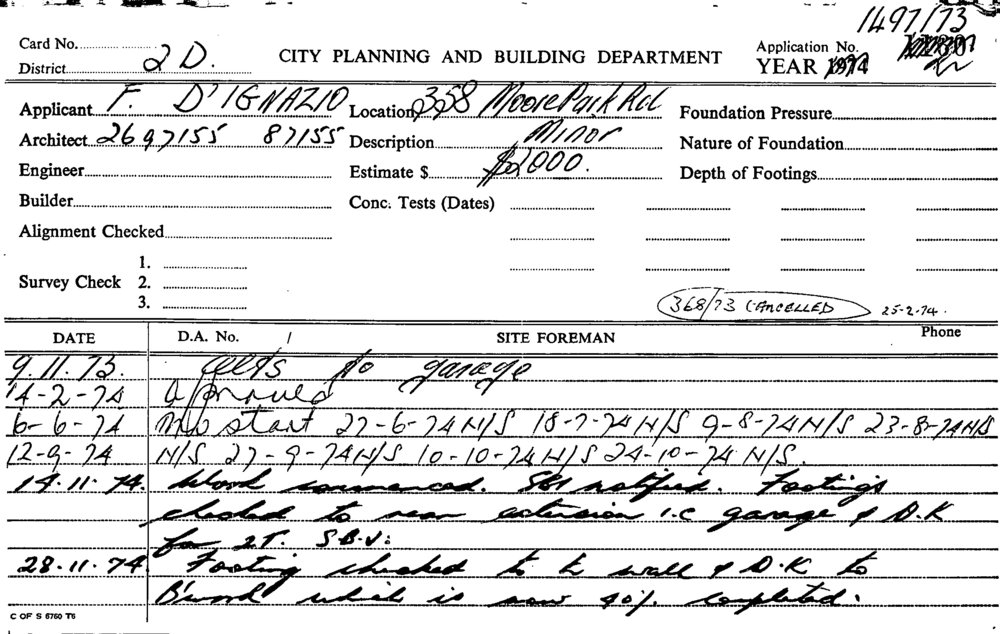 1497/73
Card No.
District 2D.
CITY PLANNING AND BUILDING DEPARTMENT
Application No.
YEAR 1974
Applicant F. D'IGNAZIO Location 358 Moore Park Rd Foundation Pressure
Architect 2697155 87155 Description Minor Nature of Foundation
Engineer Estimate $ $2000. Depth of Footings
Builder Conc. Tests (Dates)
Alignment Checked
1.
Survey Check 2.
3.
368/73 CANCELLED 25-2-74.
DATE D.A. No. / SITE FOREMAN Phone
9.11.73. to garage
14-2-74 approved
6-6-74 No start 27-6-74 N/S 18-7-74 N/S 9-8-74 N/S 23-8-74 N/S
12-9-74 N/S 27-9-74 N/S 10-10-74 N/S 24-10-74 N/S.
14.11.74. Work commenced. notified. Footings
checked to rear extension i.e garage & D.K
for 2T. S.B.J:
28.11.74. Footing checked to wall & D.K to
B'work which is now 40% completed.
C OF S 6760 T6